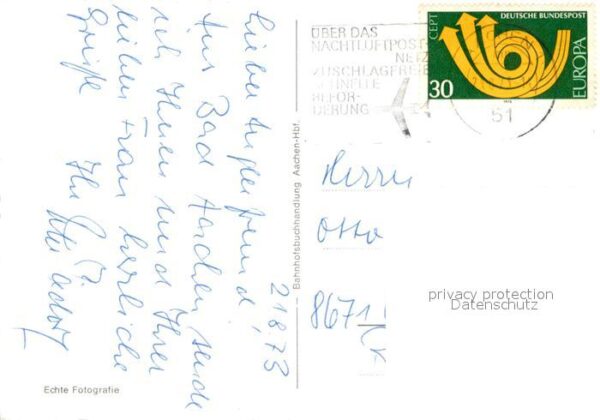 21.8.73
Lieber Angelfreund,
Aus Bad Aachen sende
ich Ihnen und Ihrer
lieben Frau herzliche
Grüße Ihr
Echte Fotografie
Bahnhofsbuchhandlung Aachen-Hbf.
ÜBER DAS
NACHTLUFTPOST
NETZ
ZUSCHLAGFREIE
SCHNELLE
BEFÖR-
DERUNG
51
CEPT
DEUTSCHE BUNDESPOST
EUROPA
30
Herrn
Otto
8671
privacy protection
Datenschutz